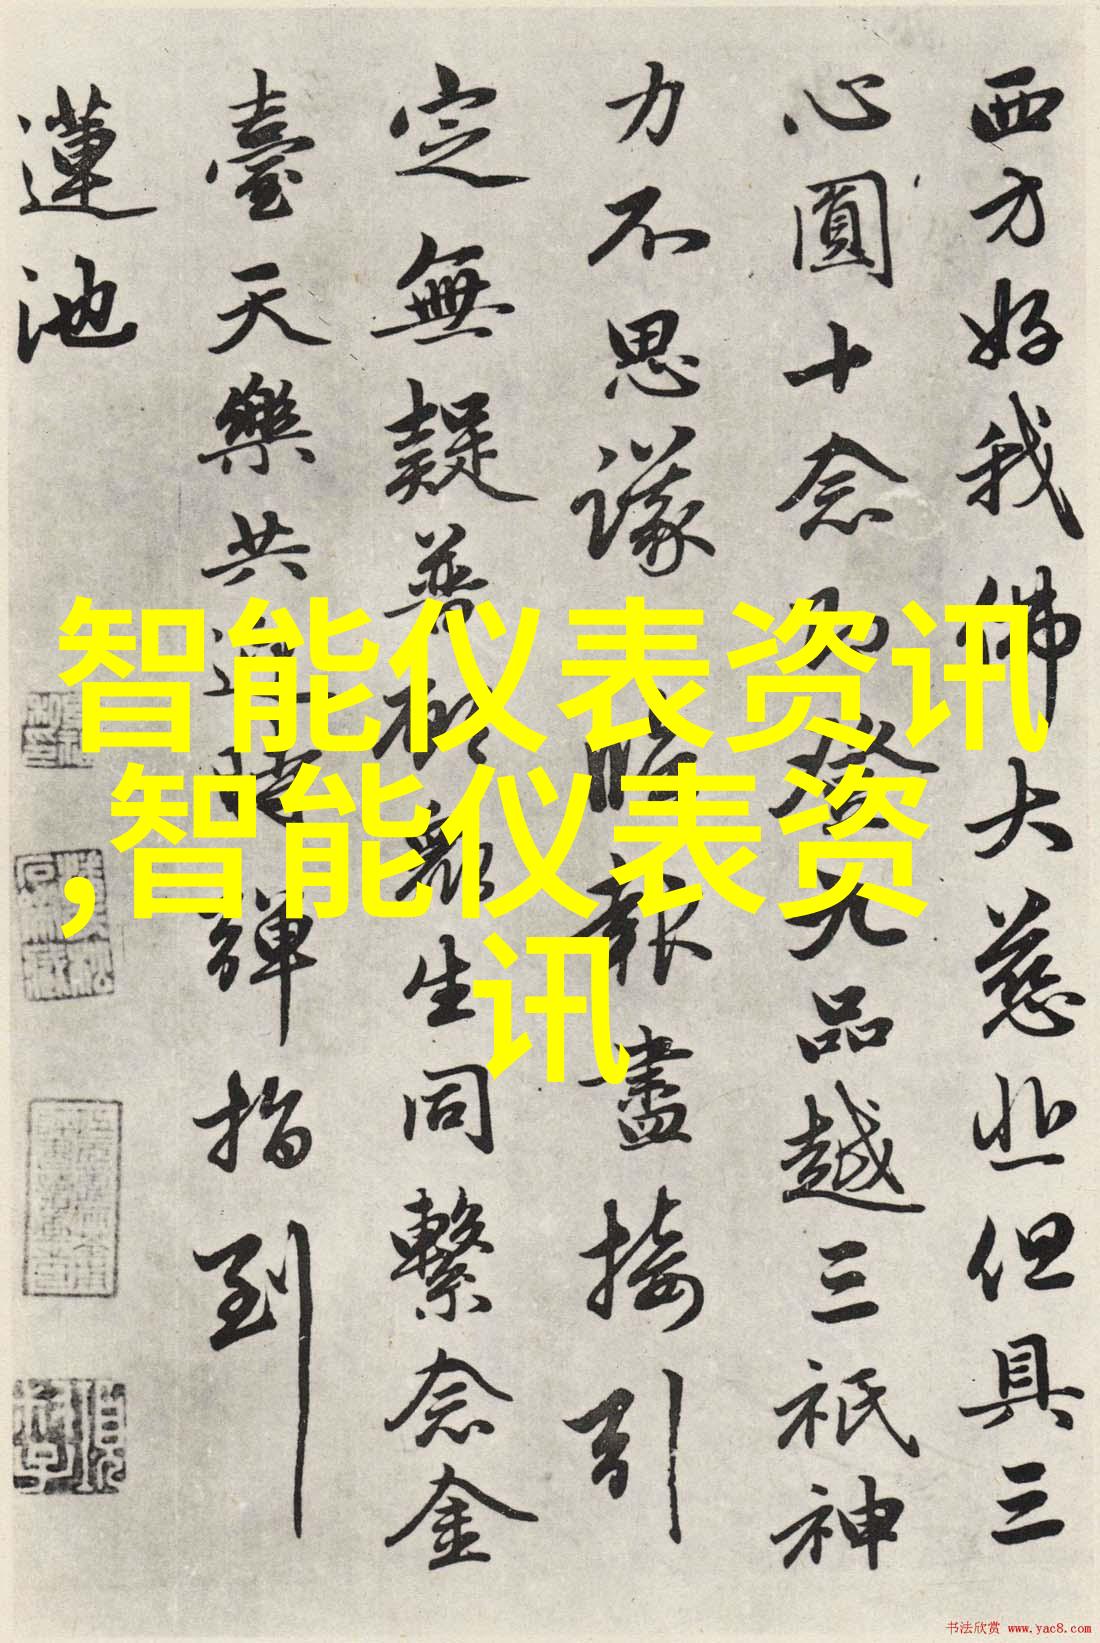 西方好我佛大慈悲但具三
心圓十念乃登九品越三祇神
力不思議臨報盡接引
定無疑普願眾生同繫念金
臺天樂共迎時彈指到
蓮池
智能仪表资讯
,智能仪表资
讯
书法欣赏 www.yac8.com